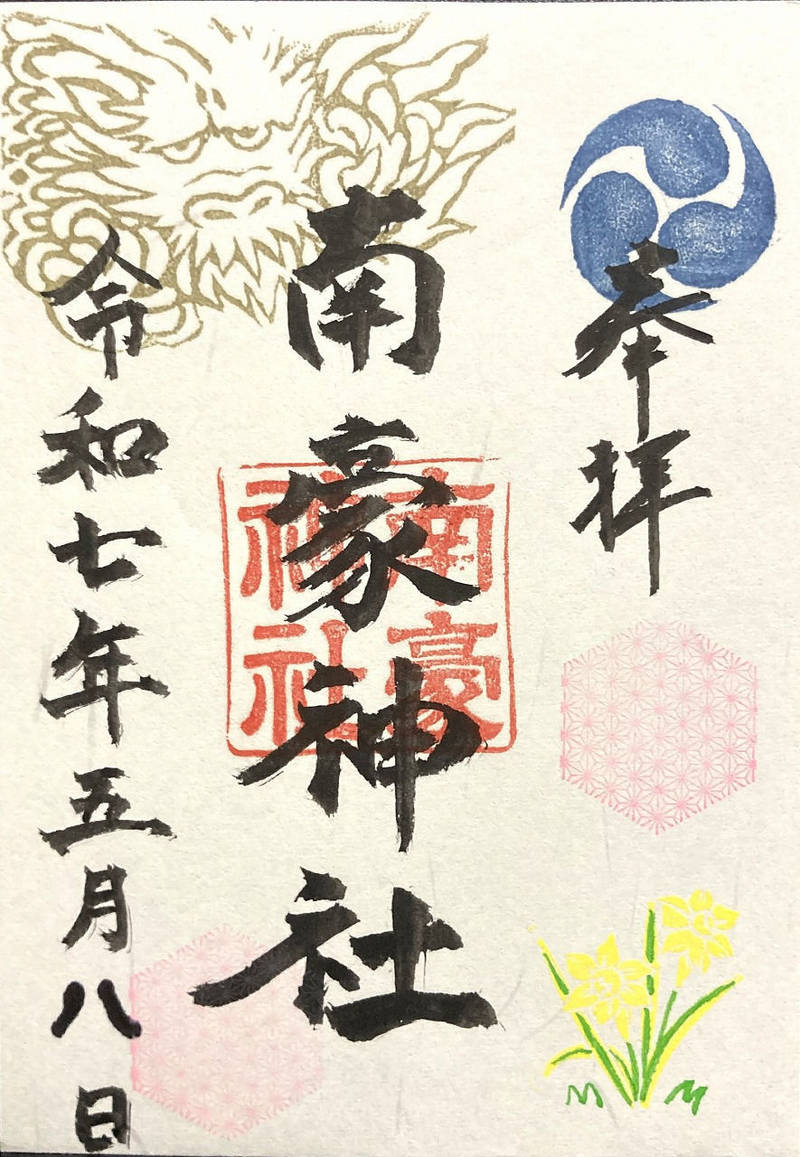 奉拝
南豪神社
南豪
神社
令和七年五月八日